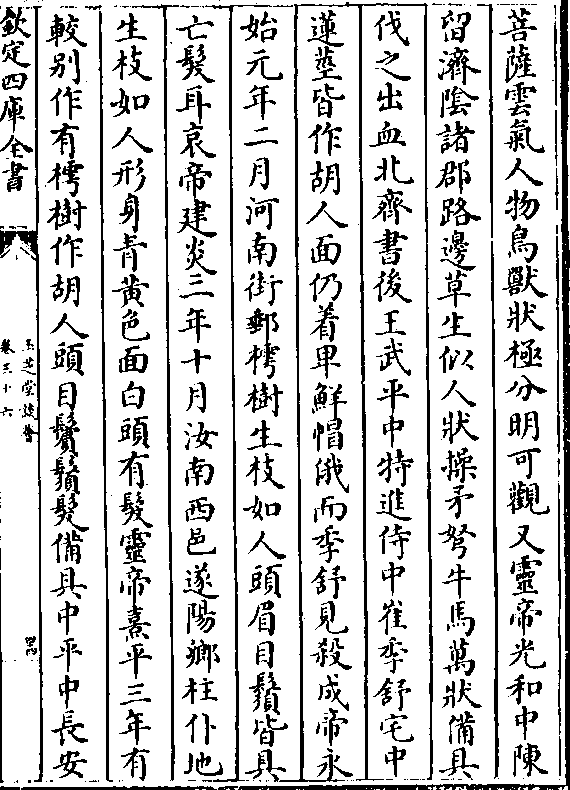 菩薩雲氣人物鳥獸狀極分明可觀又靈帝光和中陳
留濟陰諸郡路邊草生似人狀操矛弩牛馬萬狀備具
伐之出血北齊書後主武平中特進侍中崔季舒宅中
蓮莖皆作胡人面仍着卑鮮帽俄而季舒見殺成帝永
始元年二月河南街郵樗樹生枝如人頭眉目鬚皆具
亡髮耳哀帝建炎三年十月汝南西邑遂陽鄉柱仆地
生枝如人形身青黃色面白頭有髮靈帝熹平三年有
較别作有樗樹作胡人頭目鬢鬚髮備具中平中長安
欽定四庫全書
玉芝堂談薈
卷三十六